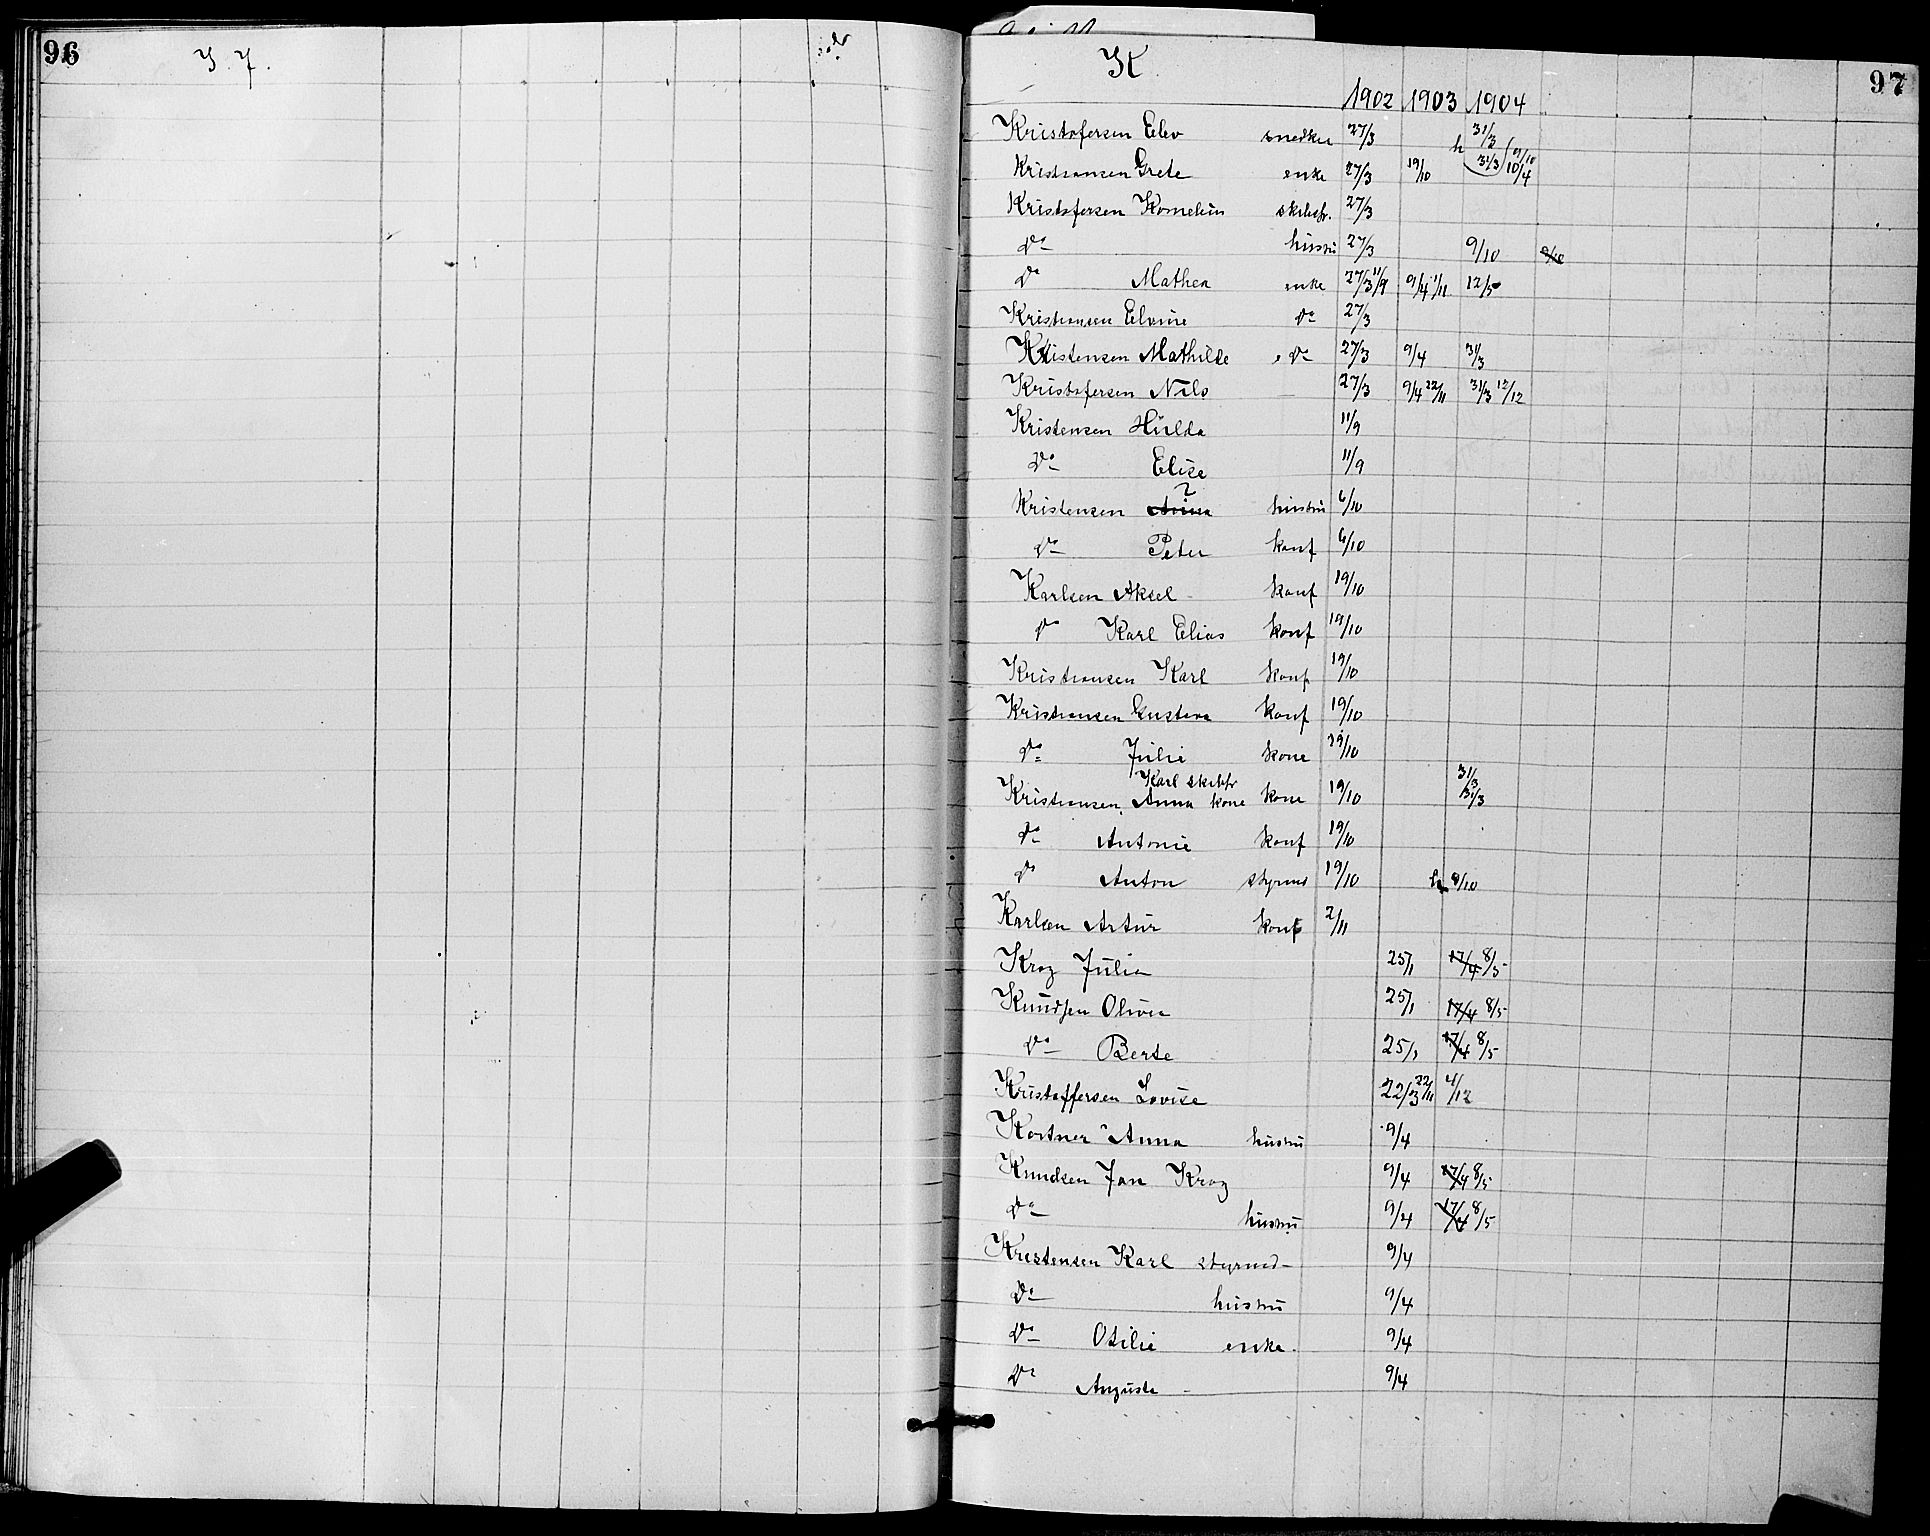 96
I. J.
K
97
1902 1903 1904
Kristofersen Elev snedker 27/3 h 31/3
Kristiansen Grete enke 27/3 19/10 31/3 9/10 10/4
Kristofersen Kornelius skibsfr. 27/3
Do hustru 27/3 9/10 9/10
Do Mathea enke 27/3 11/9 9/4 1/11 12/5
Kristiansen Elvine Do 27/3
Kristensen Mathilde Do 27/3 9/4 31/3
Kristofersen Nils 27/3 9/4 22/11 31/3 12/12
Kristensen Hulda 11/9
Do Elise 11/9
?
Kristensen Anna hustru 6/10
Do Peter konf 6/10
Karlsen Aksel konf 19/10
Do Karl Elias konf 19/10
Kristiansen Karl konf 19/10
Kristiansen Gustava konf 19/10
Do Julie kone 19/10
Karl skibsfr 31/3
Kristiansen Anna kone kone 19/10 31/3
Do Antonie konf 19/10
Do Anton styrmd 19/10 9/10
Karlsen Artur konf 2/11
Krog Julia 25/1 17/4 8/5
Knudsen Olivia 25/1 17/4 8/5
Do Berte 25/1 17/4 8/5
Kristoffersen Lovise 22/3 22/11 4/12
Kortner Anna hustru 9/4
Knudsen Jan Krog 9/4 17/4 8/5
Do hustru 9/4 17/4 8/5
Kristensen Karl styrmd 9/4
Do hustru 9/4
Do Otilie enke. 9/4
Do Augusta 9/4